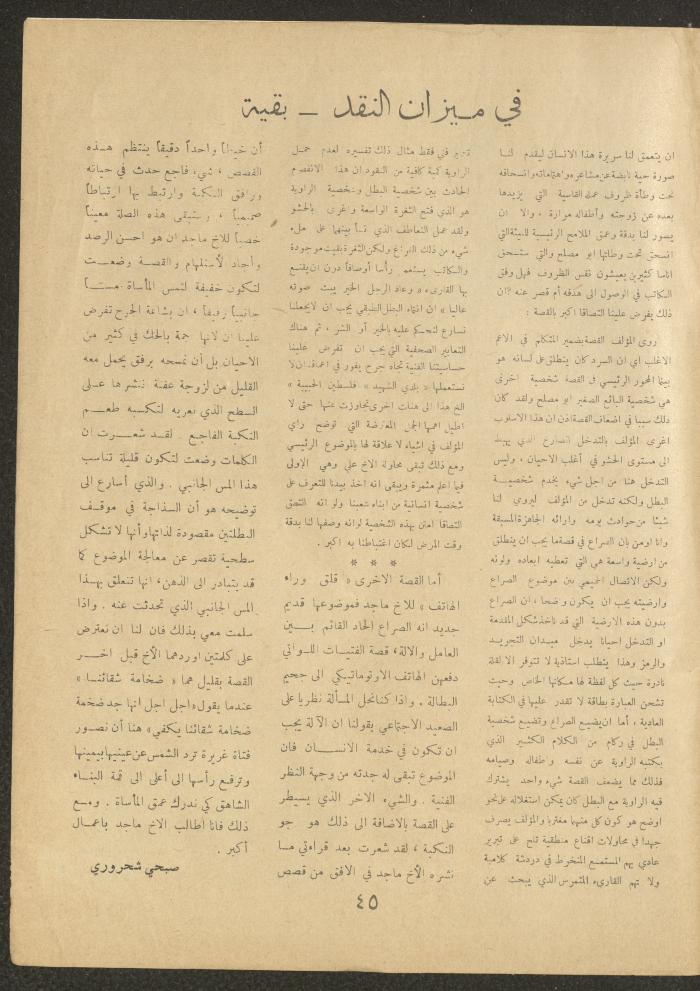 في ميزان النقد ــ بقية
ان يتعمق لنا سريرة هذا الانسان ليقدم لنا
صورة حية نابضة عن مشاعره واهتماماته وانسحاقه
تحت وطأة ظروف عمله القاسية التي يزيدها
بعده عن زوجته وأطفاله مرارة ، والا ان
يصور لنا بدقة وعمق الملامح الرئيسية للبيئة التي
انسحق تحت وطاتها ابو مصلح والتي ستسحق
اناسا كثيرين يعيشون نفس الظروف فهل وفق
الكاتب في الوصول الى هدفه أم قصر عنه ؟ ان
ذلك يفرض علينا التصاقا اكبر بالقصة :
روى المؤلف القصة بضمير المتكلم في الاعم
الاغلب أي ان السرد كان ينطلق على لسانه هو
بينما المحور الرئيسي في القصة شخصية اخرى
هي شخصية البائع الصغير ابو مصلح ولقد كان
ذلك سببا في اضعاف القصة اذن ان هذا الاسلوب
اغرى المؤلف بالتدخل الصارخ الذي يهبط
الى مستوى الحشو في أغلب الاحيان ، وليس
التدخل هنا من اجل شيء يخدم شخصية
البطل ولكنه تدخل من المؤلف ليروي لنا
شيئا من حوادث يومه وارائه الجاهزة المسبقة
وانا اومن بان الصراع في قصة ما يجب ان ينطلق
من ارضية واسعة هي التي تعطيه ابعاده ولونه
ولكن الاتصال الحميمي بين موضوع الصراع
وارضيته يجب ان يكون واضحا ، ان الصراع
بدون هذه الارضية التي قد تاخذ شكل المقدمة
او التدخل احيانا يدخل ميدان التجريد
والرمز وهذا يتطلب استاذية لا تتوفر الا لقلة
نادرة حيث كل لفظة لها مكانها الخاص وحيث
تشحن العبارة بطاقة لا تقدر عليها في الكتابة
العادية ، أما ان يضيع الصراع وتضيع شخصية
البطل في ركام من الكلام الكثير الذي
يكتبه الراوية عن نفسه واطفاله وصيامه
فذلك مما يضعف القصة شيء واحد يشترك
فيه الراوية مع البطل كان يمكن استغلاله على نحو
اوضح هو كون كل منهما مغتربا والمؤلف يصرف
جهدا في محاولات اقناع منطقية تلح على تبرير
عادي يهم المستمع المنخوط في دردشة كلامية
ولا تهم القارىء المتمرس الذي يبحث عن
تبرير فني فقط مثال ذلك تفسيره لعدم حمل
الراوية كمية كافية من النقود ان هذا الانفصم
الحادث بين شخصية البطل وشخصية الراوية
هو الذي فتح الثغرة الواسعة واغرى بالحشو
ولقد عمل التعاطف الذي نشأ بينهما على ملء
شيء من ذلك الفراغ ولكن الثغرة بقيت موجودة
والكاتب يستعمل رأسا أوصافا دون ان يقنع
بها القارىء « وعاد الرجل الخير يبث صوته
عاليا » ان انتماء البطل الطبقي يجب ان لا يجعلنا
نسارع لنحكم عليه بالخير أو الشر ، ثم هناك
التعابير الصحفية التي يجب ان تفرض علينا
حساسيتنا الفنية تجاه جرح يغور في اعماقنا ان لا
نستعملها « بلدي الشهيد » « فلسطين الحبيبة »
الخ هذا الى هنات اخرى تجاوزت عنها حتى لا
اطيل اهمها الجمل المعترضة التي توضح راي
المؤلف في اشياء لا علاقة لها بالموضوع الرئيسي
ومع ذلك تبقى محاولة الاخ علي وهي الاولى
فيما اعلم مثمرة ويبقى انه اخذ بيدنا للتعرف على
شخصية انسانية من ابناء شعبنا ولو انه التصق
التصاقا امتن بهذه الشخصية لوانه وصفها لنا بدقة
وقت المرض لكان اغتباطنا به اكبر .
* * *
أما القصة الاخرى « قلق وراء
الهاتف » للاخ ماجد فموضوعها قديم
جديد انه الصراع الحاد القائم بين
العامل والالة، قصة الفتيات اللواتي
دفعهن الهاتف الاوتوماتيكي الى جحيم
البطالة . واذا كنا نحل المسألة نظريا على
الصعيد الاجتماعي بقولنا ان الآلة يجب
ان تكون في خدمة الانسان فان
الموضوع تبقى له جدته من وجهة النظر
الفنية . والشيء الاخر الذي يسيطر
على القصة بالاضافة الى ذلك هو جو
النكبة ، لقد شعرت بعد قراءتي ما
نشره الأخ ماجد في الافق من قصص
أن خيطاً واحداً دقيقاً ينتظم هذه
القصص ، شيء فاجع حدث في حياته
ورافق النكبة وارتبط بها ارتباطاً
صميمياً ، وستبقى هذه الصلة معيناً
خصباً للاخ ماجد ان هو احسن الرصد
وأجاد الاستلهام والقصة وضعت
لتكون خفيفة لتمس المأساة مساً
جانبياً رفيقاً ، ان بشاعة الجرح تفرض
علينا ان لانها جمة بالحك في كثير من
الاحيان بل أن نمسحه برفق يحمل معه
القليل من لزوجة عفنة ننشرها على
السطح الذي نعريه لتكسبه طعم
النكبة الفاجع . لقد شعرت ان
الكلمات وضعت لتكون قليلة تناسب
هذا المس الجانبي . والذي أسارع الى
توضيحه هو أن السذاجة في موقف
البطلتين مقصودة لذاتها وأنها لا تشكل
سطحية تقصر عن معالجة الموضوع كما
قد يتبادر الى الذهن، انها تتعلق بهذا
المس الجانبي الذي تحدثت عنه . واذا
سلمت معي بذلك فان لنا ان نعترض
على كلمتين اوردهما الأخ قبل اخر
القصة بقليل هما « ضخامة شقائنا »
عندما يقول « اجل اجل انها جد ضخمة
ضخامة شقائنا يكفي » هنا أن نصور
فتاة غريرة ترد الشمس عن عينيها بيمينها
وترفع رأسها الى أعلى الى قمة البناء
الشاهق كي ندرك عمق المأساة . ومع
ذلك فانا اطالب الاخ ماجد باعمال
أكبر .
صبحي شحروري
٤٥